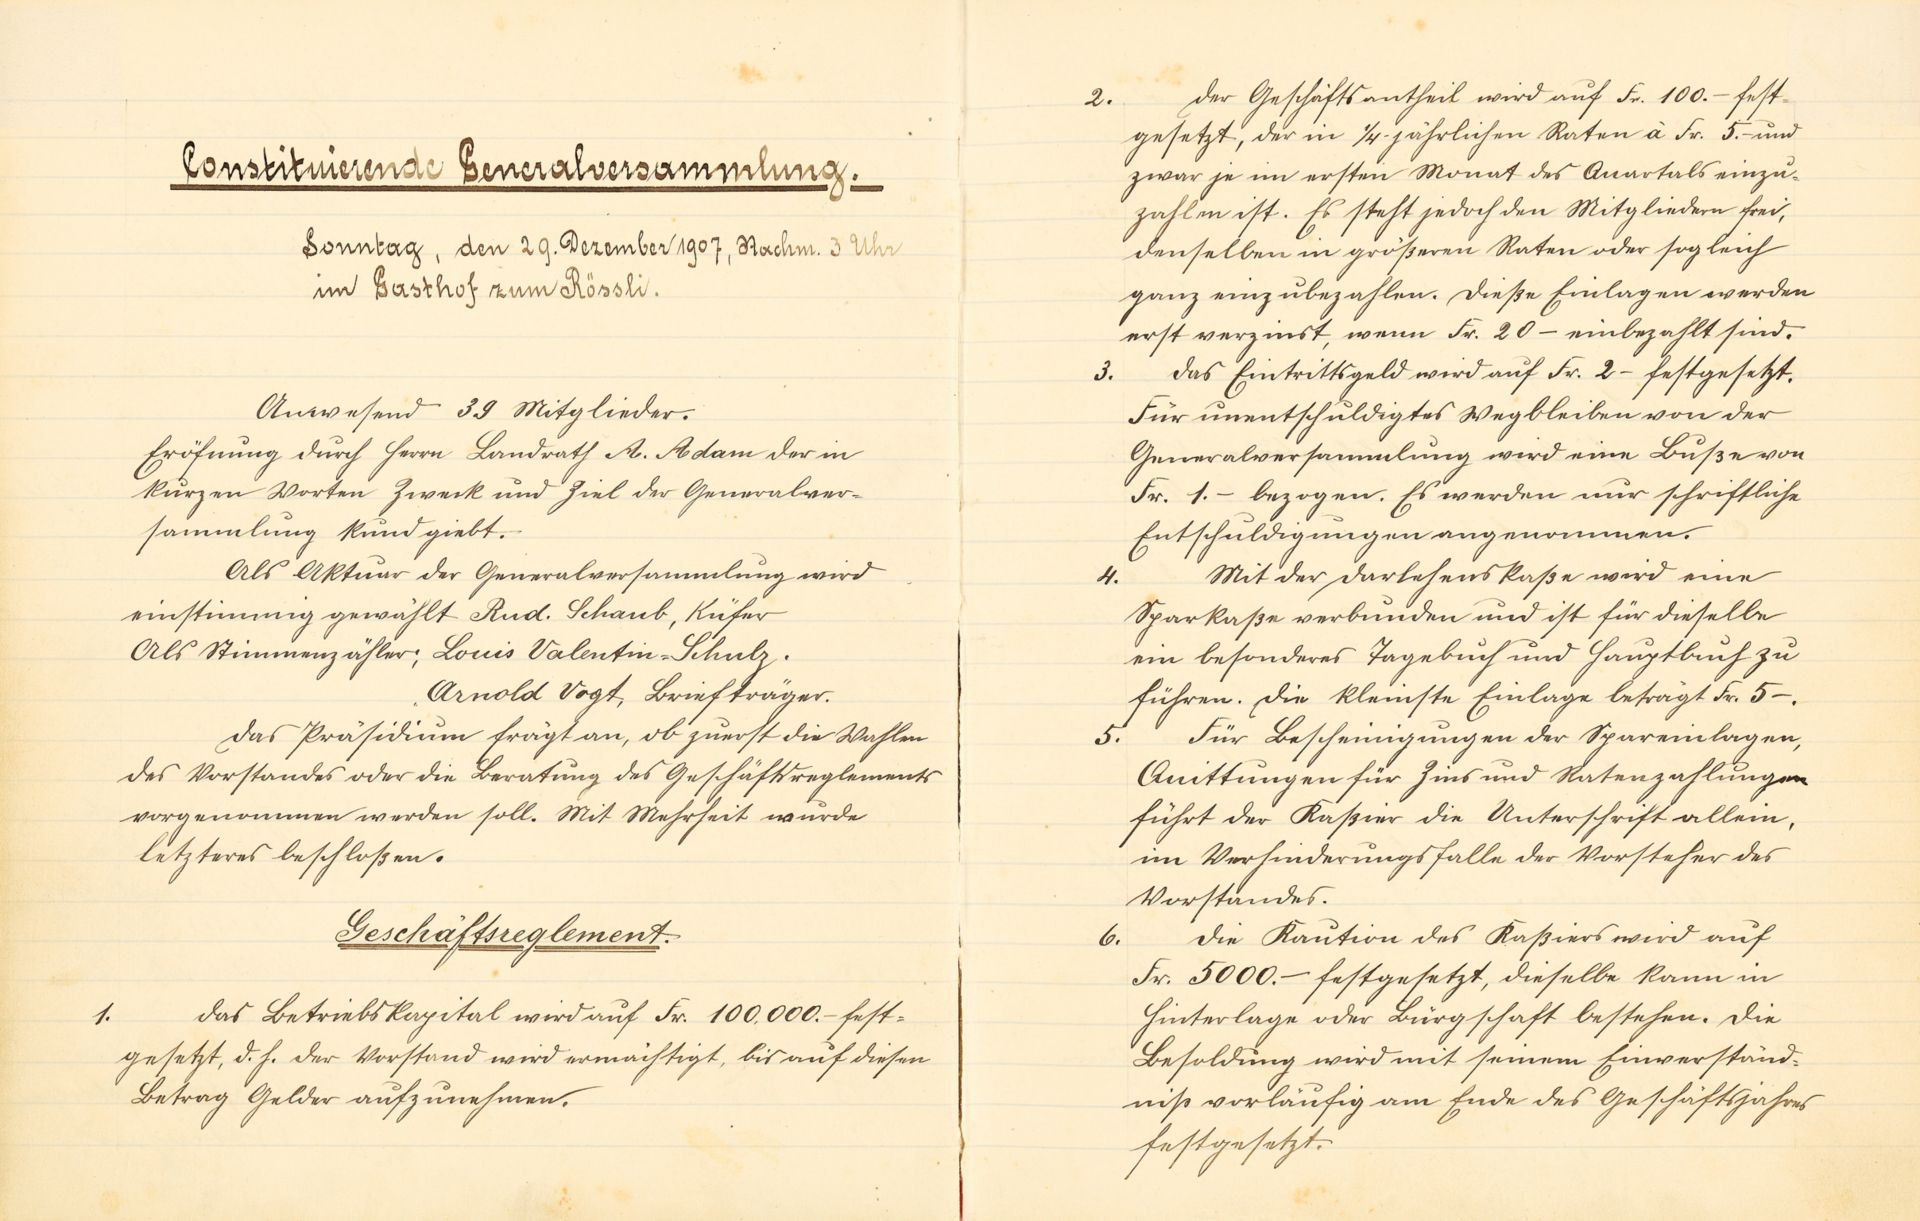 Constituierende Generalversammlung.
Sonntag, den 29. Dezember 1907, Nachm. 3 Uhr
im Gasthof zum Rössli.
Anwesend 39 Mitglieder.
Eröfnung durch Herrn Landrath A. Adam der in
kurzen Worten Zweck und Ziel der Generalver-
sammlung kund giebt.
Als Aktuar der Generalversammlung wird
einstimmig gewählt Rud. Schaub, Küfer
Als Stimmenzähler; Louis Valentin-Schulz.
Arnold Vogt, Briefträger.
Das Präsidium frägt an, ob zuerst die Wahlen
des Vorstandes oder die Beratung des Geschäftsreglements
vorgenommen werden soll. Mit Mehrheit wurde
letzteres beschloßen.
Geschäftsreglement.
1. Das Betriebskapital wird auf Fr. 100,000.- fest-
gesetzt, d. h. der Vorstand wird ermächtigt, bis auf diesen
Betrag Gelder aufzunehmen.
2. Der Geschäftsantheil wird auf Fr. 100.- fest-
gesetzt, der in 1/4-jährlichen Raten à Fr. 5.- und
zwar je im ersten Monat des Quartals einzu-
zahlen ist. Es steht jedoch den Mitgliedern frei,
denselben in größeren Raten oder sogleich
ganz einzubezahlen. Dieße Einlagen werden
erst verzinst, wenn Fr. 20 - einbezahlt sind.
3. Das Eintrittsgeld wird auf Fr. 2 - festgesetzt.
Für unentschuldigtes Wegbleiben von der
Generalversammlung wird eine Buße von
Fr. 1.- bezogen. Es werden nur schriftliche
Entschuldigungen angenommen.
4. Mit der Darlehenskaße wird eine
Sparkaße verbunden und ist für dieselbe
ein besonderes Tagebuch und Hauptbuch zu
führen. Die kleinste Einlage beträgt Fr. 5 -.
5. Für Bescheinigungen der Spareinlagen,
Quittungen für Zins und Ratenzahlungen
führt der Kaßier die Unterschrift allein,
im Verhinderungsfalle der Vorsteher des
Vorstandes.
6. Die Kaution des Kaßiers wird auf
Fr. 5000.- festgesetzt, dieselbe kann in
Hinterlage oder Bürgschaft bestehen. Die
Besoldung wird mit seinem Einverständ-
niß vorläufig am Ende des Geschäftsjahres
festgesetzt.